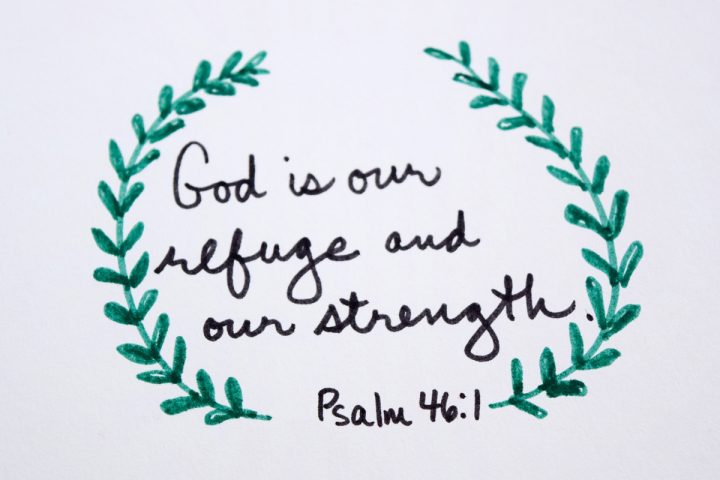 God is our
refuge and
our strength.
Psalm 46:1